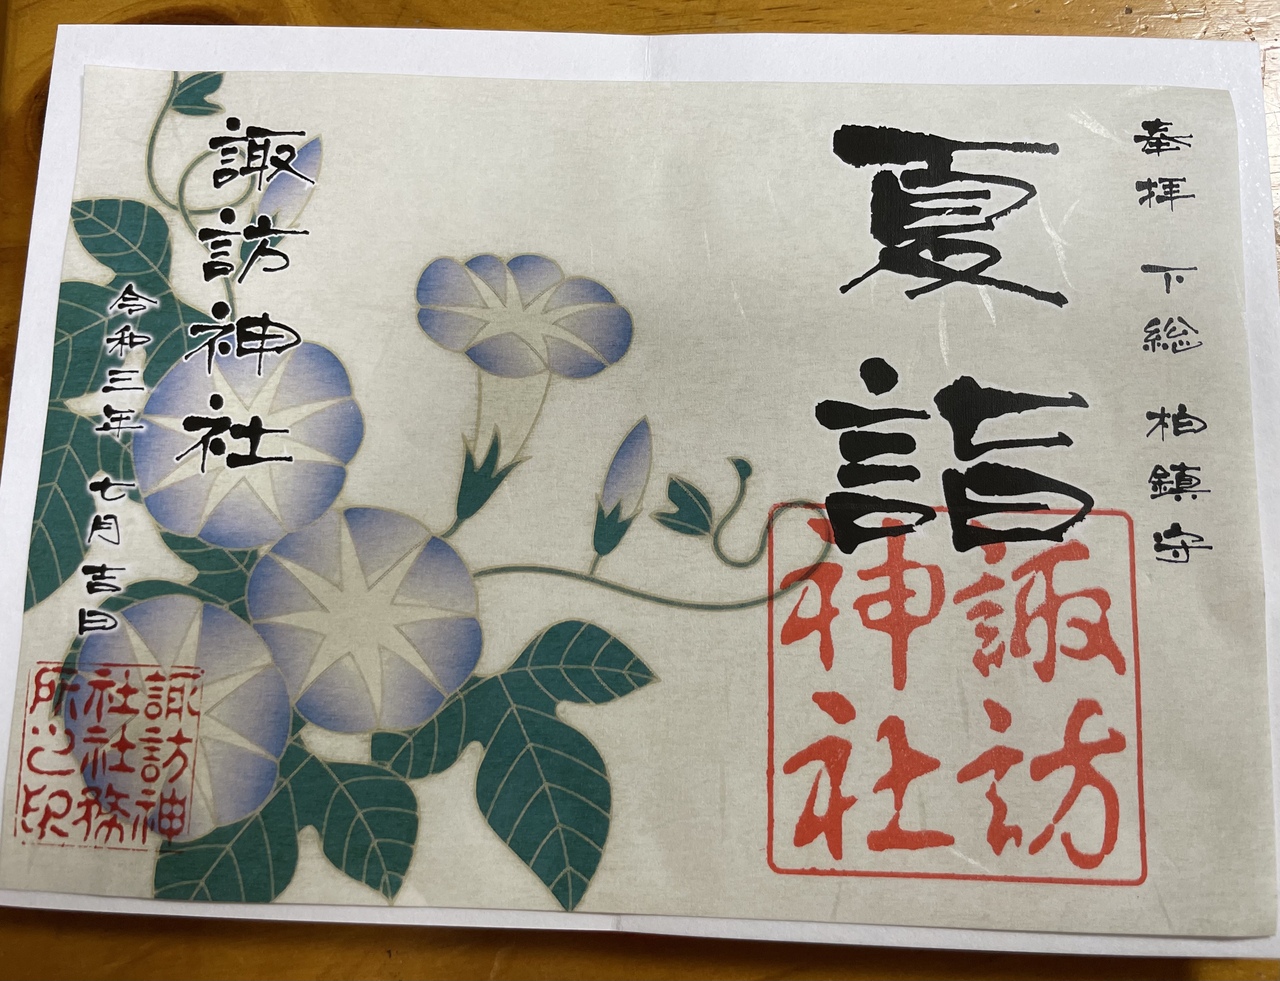 奉拝 下総 柏鎮守
夏詣
諏訪
神社
諏訪神社
令和三年 七月吉日
諏訪神
社社務
所之印